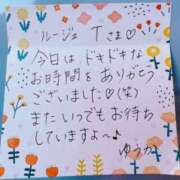 ルージュ Tさま♡
今日は ドキドキな
お時間を ありがとう
ございました♡(笑)
また いつでも お待ち
していますよ〜♪
ゆうか